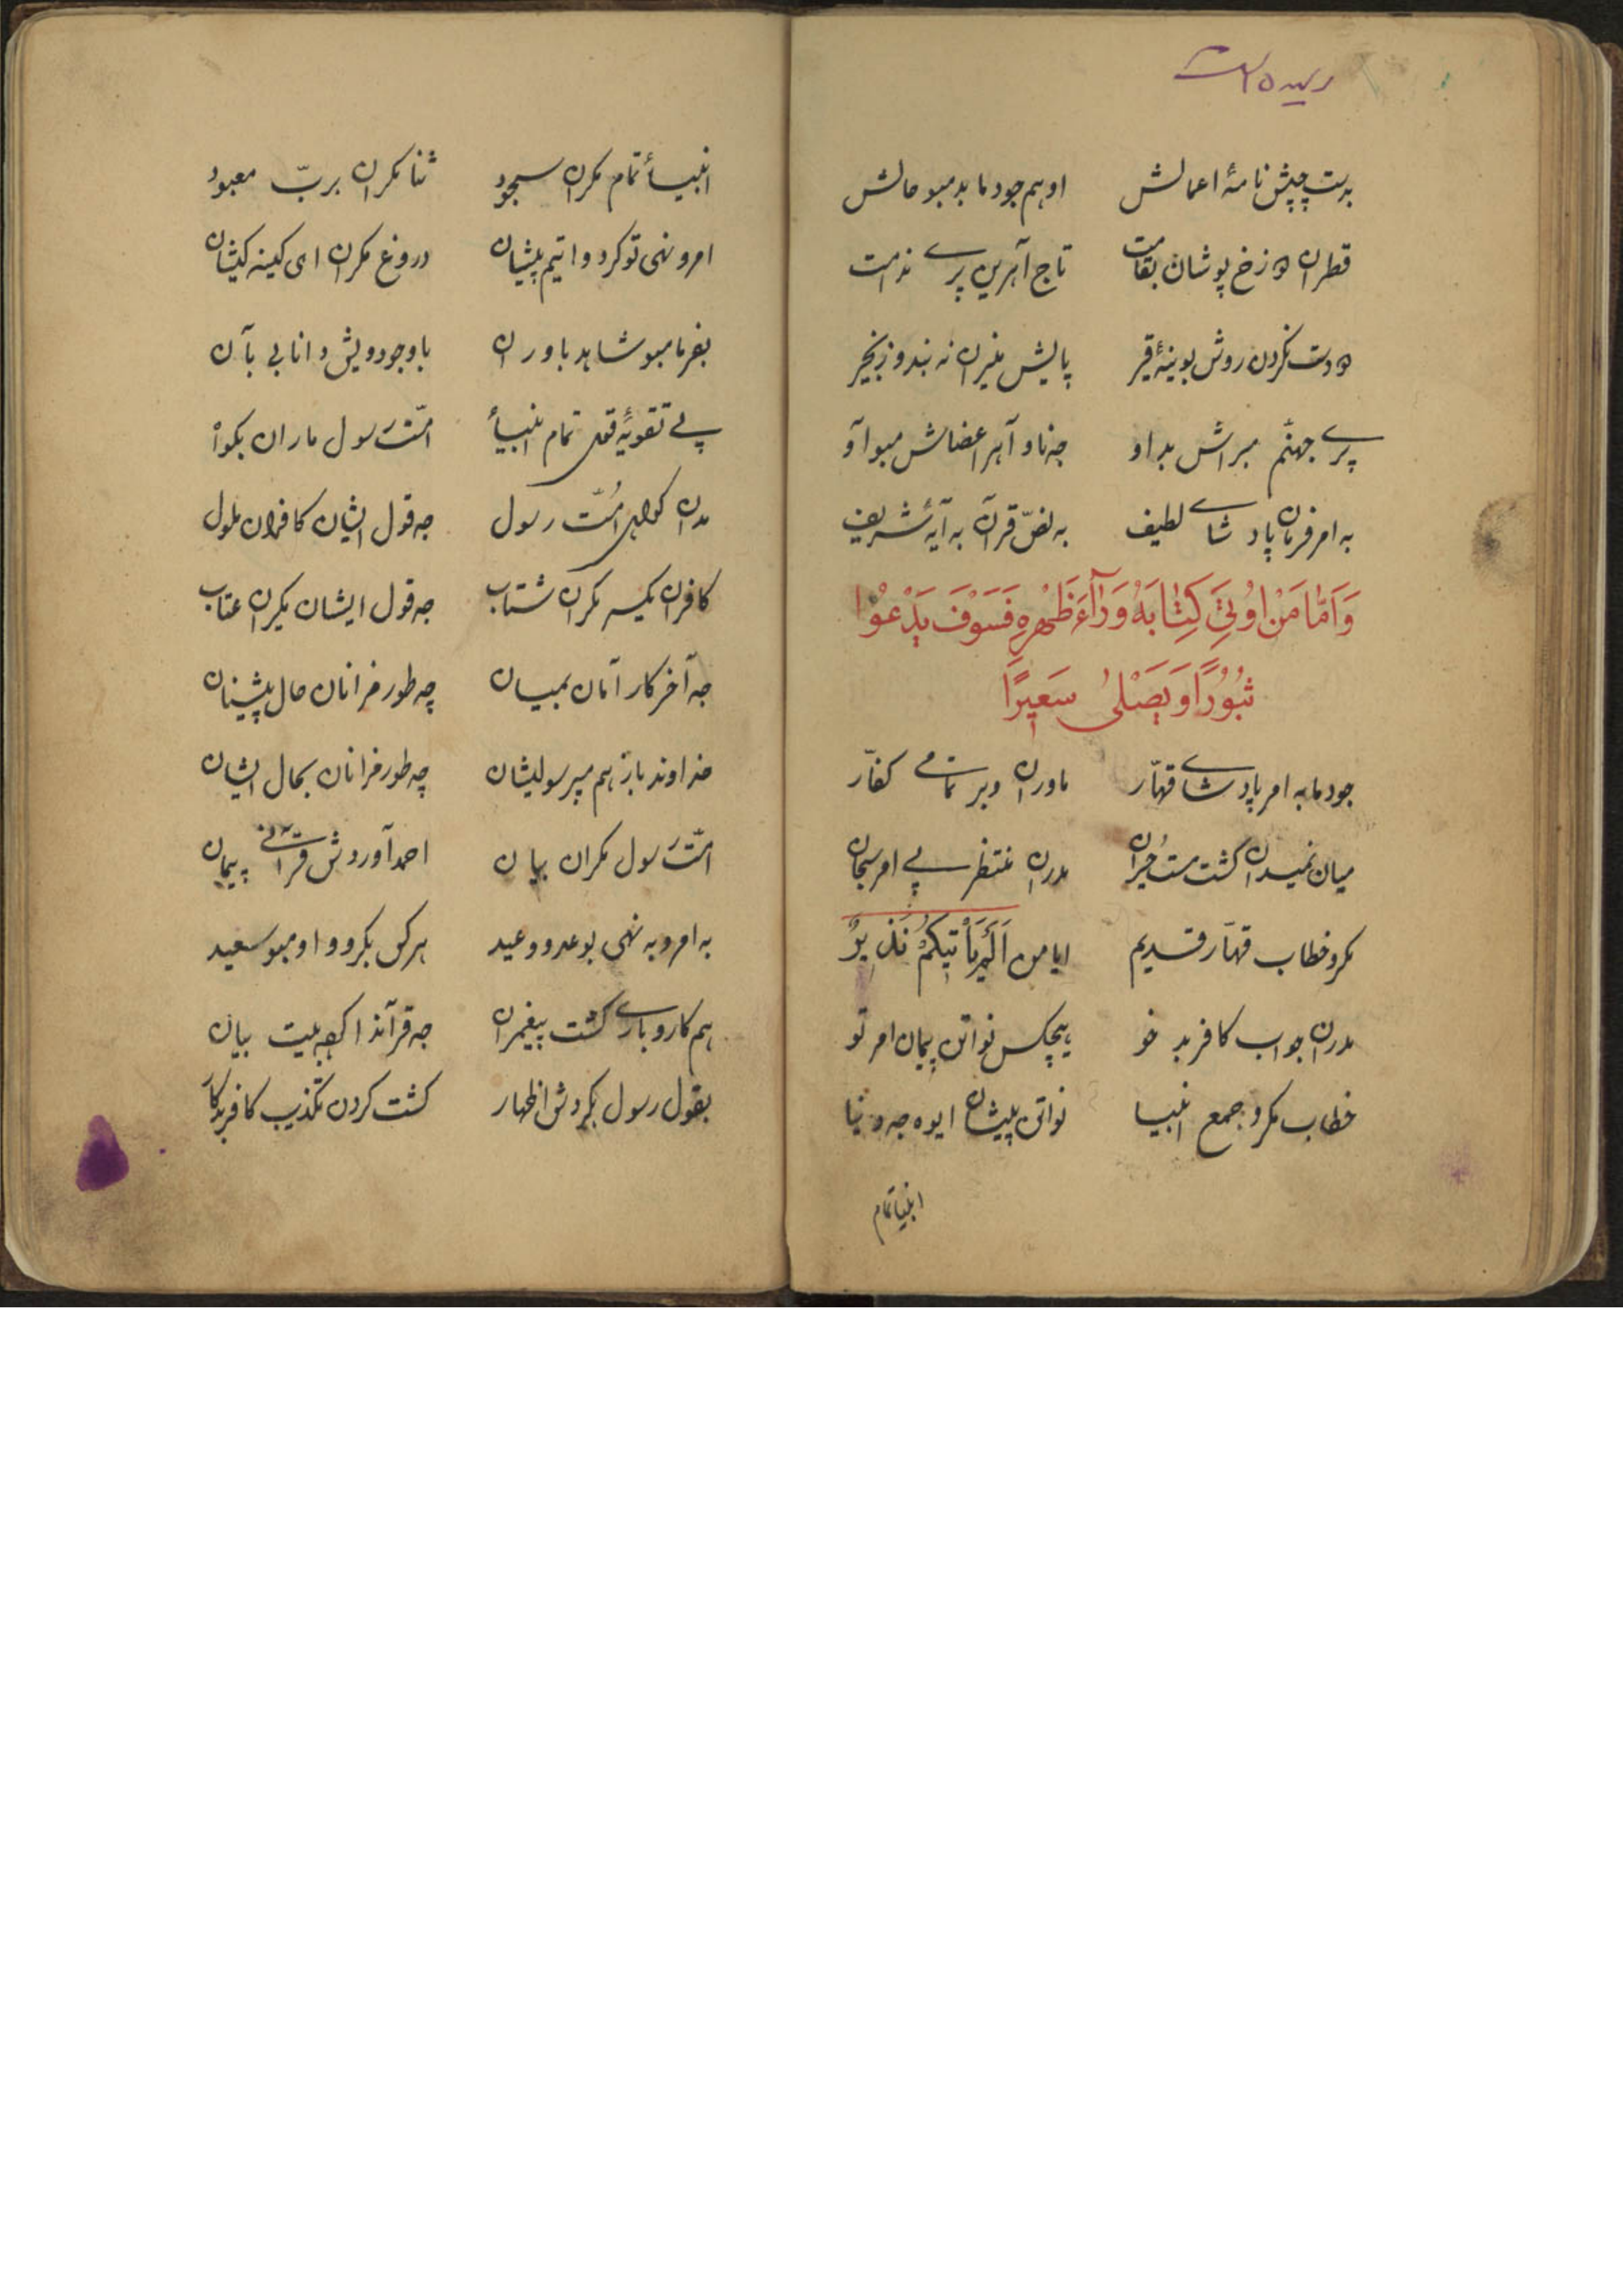 بدست چپش نامهٔ اعمالش اوهم جودما بد مبو حالش
قطران دوزخ پوشان بقامت تاج آهرین پرے ندامت
دست گردن روش بوینهٔ قیر پایش منیران نه بند و زنجیر
پرے جهنّم مبراش بداو جه ناو آهر اعضاش مبو آو
به امر فرمان پادشاے لطیف به نصّ قرآن به آیهٔ شریف
وَاَمّا مَنْ اوُتِیَ کِتٰابَهُ وَرٰآءَ ظَهْرِهِ فَسَوْفَ یَدْعُوْا
ثُبُوْرًا وَ یَصْلیٰ سَعیرًا
جودما به امر پادشاے قهّار ماوران وبر تمامے کفّار
میان نمیدان گشت مست حیران مدران منتظر پے امر سبحان
مکرو خطاب قهّار قدیم ایا من اَلَمْ یَأْتِکُمْ نَذیرٌ
مدران جواب کافر بد خو هیچکس نواتن پیمان امر تو
خطاب مکرو جمع انبیا نواتن پیشان ایوه جه دنیا
انبیا تمام
انبیأ تمام مکران سجود ثنا مکران بربّ معبود
امر و نهی تو کرد واتیم پیشان دروغ مکران ای کینه کیشان
بفرما مبو شاهد باوران با وجود ویش دانا بی بآن
پے تقویهٔ قول تمام انبیأ امّت رسول ماران بگوأ
مدان گواهی امّت رسول جه قول ایشان کافران ملول
کافران یکسر مکران شتاب جه قول ایشان مکران عتاب
جه آخر کار آمان بمیان چه طور مزانان حال پیشینان
خداوند باز هم مپرسو لیشان چه طور مزانان بحال ایشان
امّت رسول مکران بیان احمد آوردش قرآنے پیمان
به امر و به نهی بوعد و وعید هر کس بکرو و او مبو سعید
هم کاروبارے گشت پیغمبران جه قرآندا بیان
بقول رسول بکردش اظهار گشت کردن تکذیب کافر بدکار